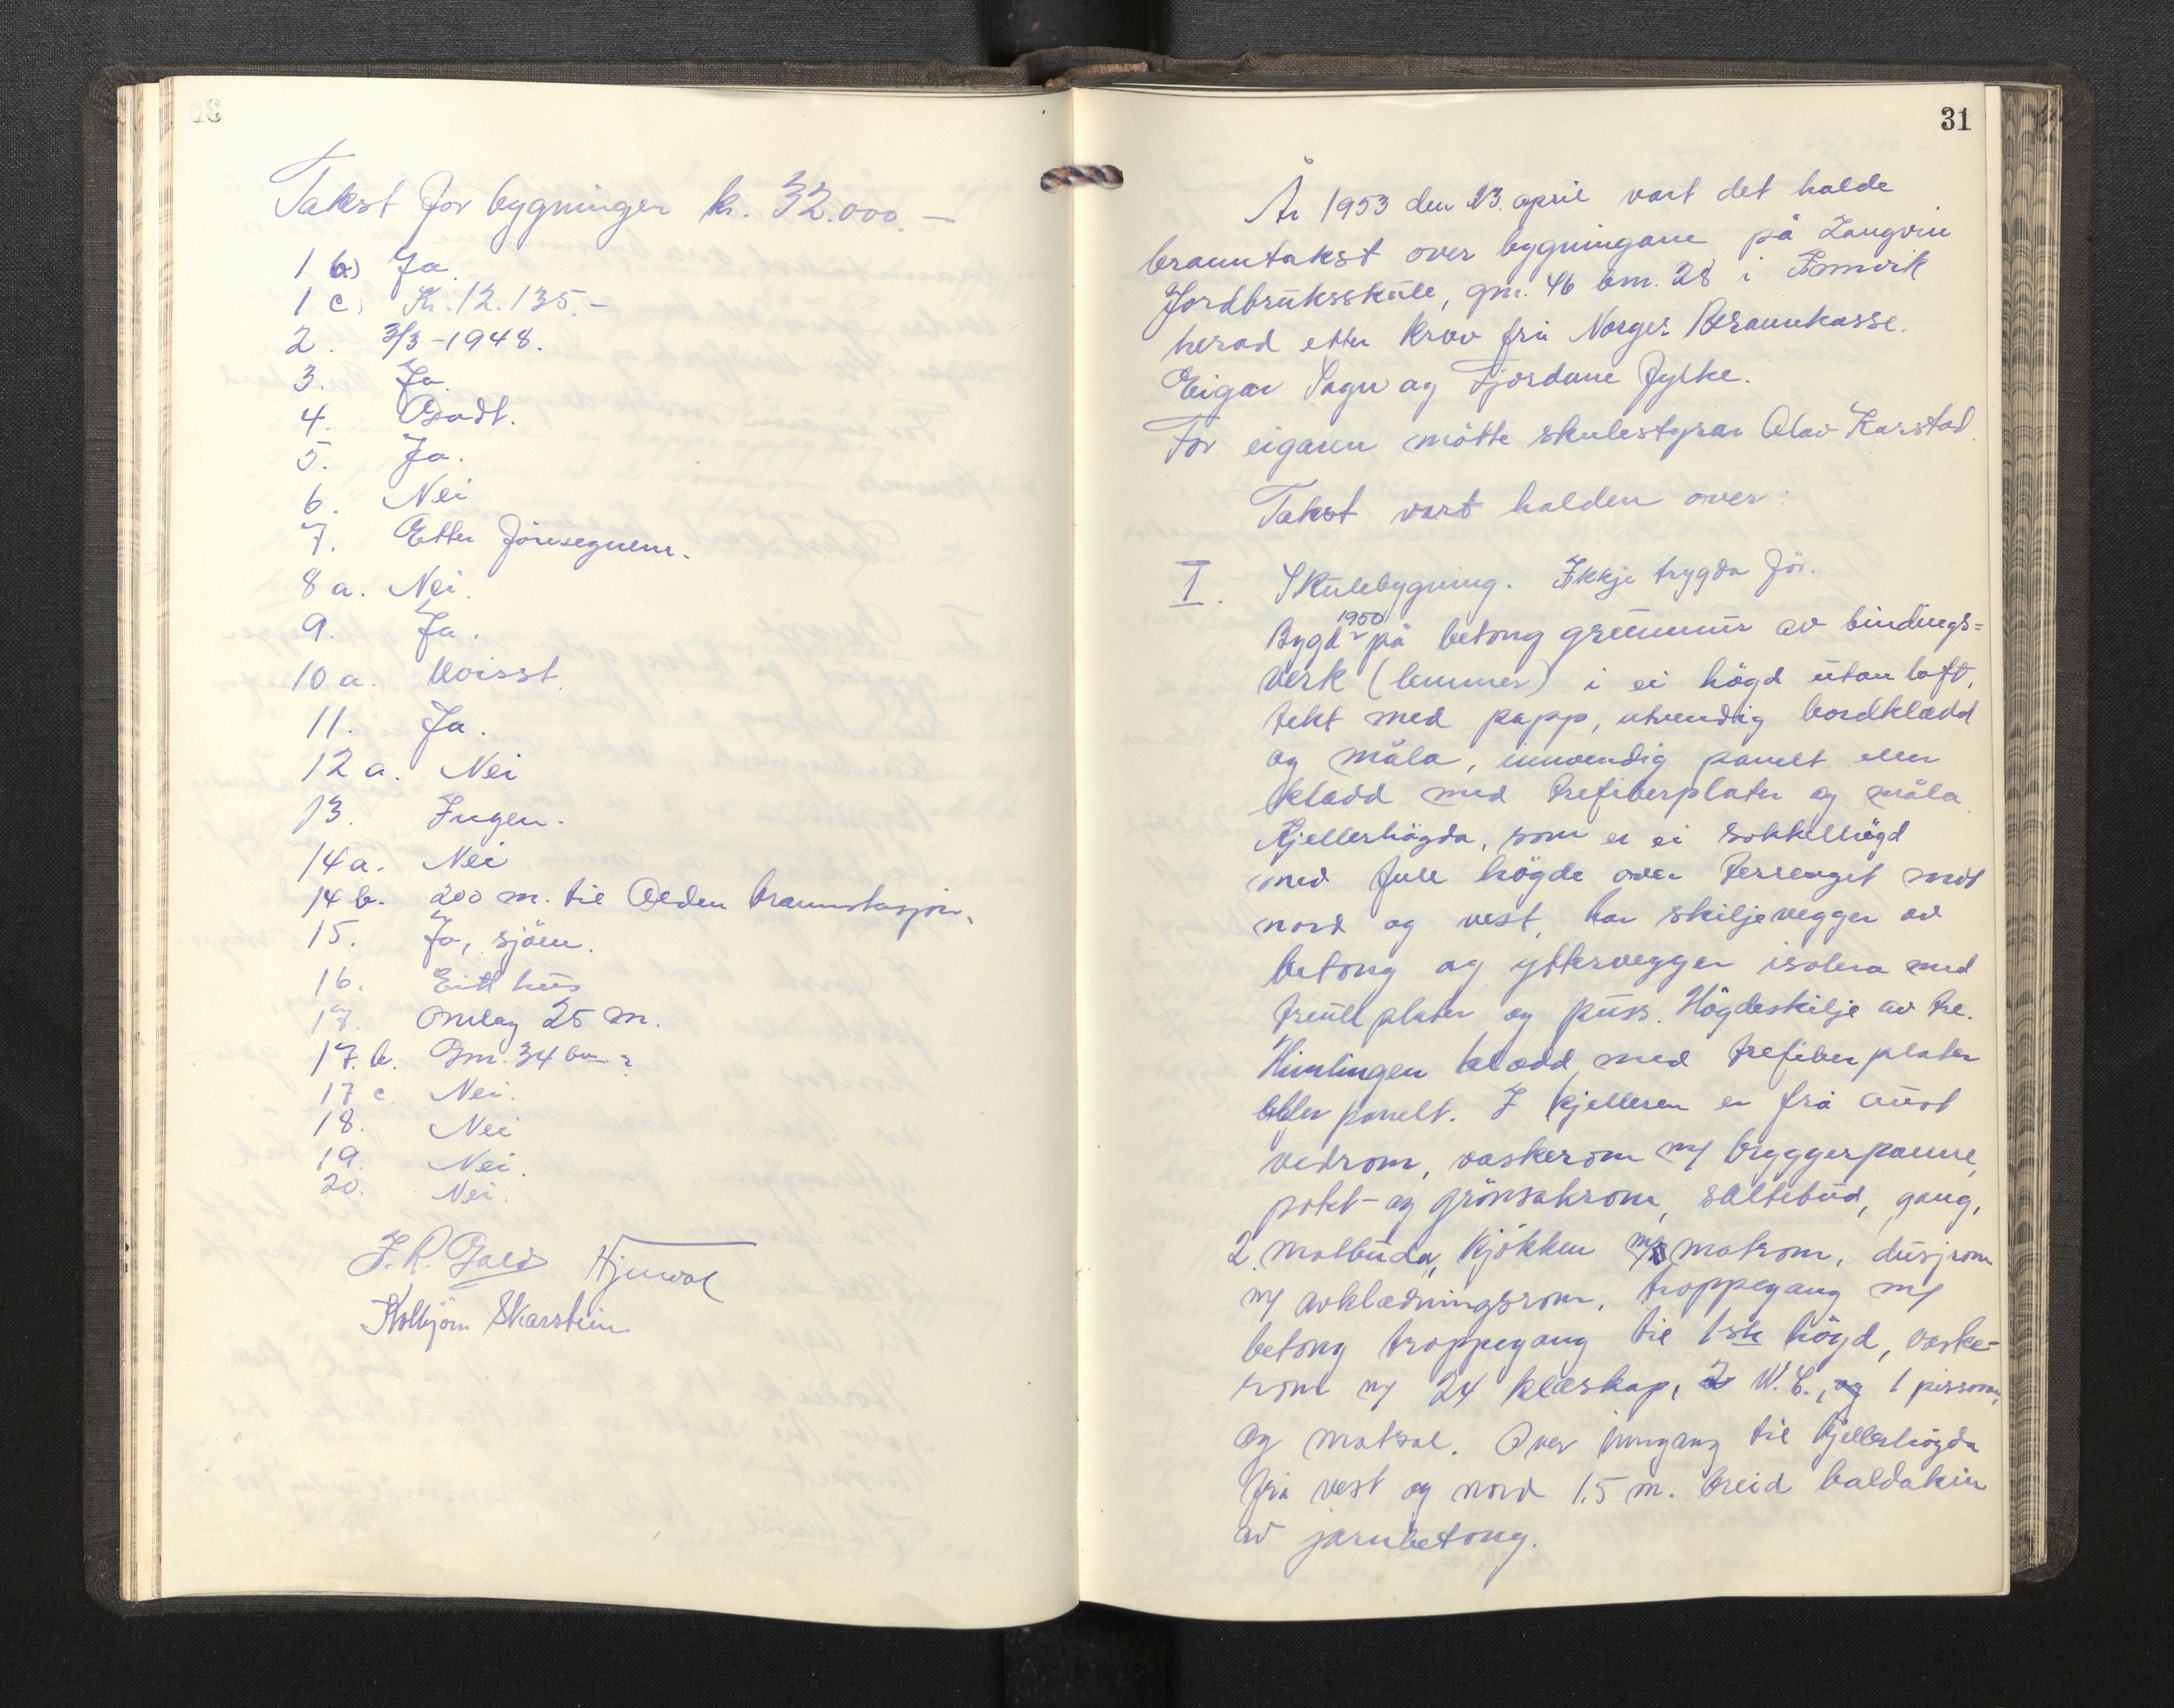 Takst for bygningen kr. 32.000.–
1 b) Ja
1 c) Kr. 12.135.–
2. 3/3 – 1948.
3. Ja.
4. Godt.
5. Ja.
6. Nei
7. Etter föresegnene.
8 a. Nei.
9. Ja.
10 a. Uvisst.
11. Ja.
12 a. Nei
13. Ingen.
14 a. Nei
14 b. 200 m. til Olden brannstasjon.
15. Ja, sjöen.
16. Eitt hus
17. Omlag 25 m.
17. b. Gnr. 34 bnr ?
17 c. Nei.
18. Nei
19. Nei.
20. Nei.
Kolbjörn Skarstein
31
År 1953 den 23. april vart det halde
branntakst over bygningane på Langvin
Jordbruksskule, gnr. 46 bnr. 28 i Innvik
herad etter krav frå Norges Brannkasse.
Eigar Sogn og Fjordane fylke.
For eigaren mötte skulestyrar Olav Karstad.
Takst vart halden over:
I. Skulebygning. Ikkje trygda för.
Bygd 1950 på betong grunnmur av bindings=
verk (lemmer) i ei högd utan loft,
tekt med papp, utvendig bordklædd
og måla, innvendig panelt eller
klædd med trefiberplater og måla.
Kjellerhögda, som er ei sokkelhögd
med full högde over terrenget mot
nord og vest, har skiljevegger av
betong og yttervegger isolera med
treullplater og puss. Högdeskilje av tre.
Himlingen klædd med trefiberplater
eller panelt. I kjelleren er frå aust
vedrom, vaskerom m/ bryggerpanne,
potet- og grönsakrom, saltebud, gang,
2 matbuder, kjökken m/ matrom, dusjrom
m/ avklædningsrom, troppegang m/
betong troppegang til 1ste högd, vaske-
rom m/ 24 klæskap, 2 W.C., og 1 pissoar,
og matsal. Over inngang til kjellerhögda
frå vest og nord 1.5 m. breid baldakin
av jarnbetong.